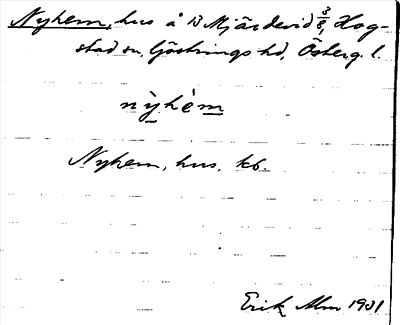 Nyhem, hus å 13 Mjärdevid 3/8, Hog-
stad sn, Göstrings hd, Österg. l.
nỳhèm
Nyhem, hus. kb.
Erik Alm 1931